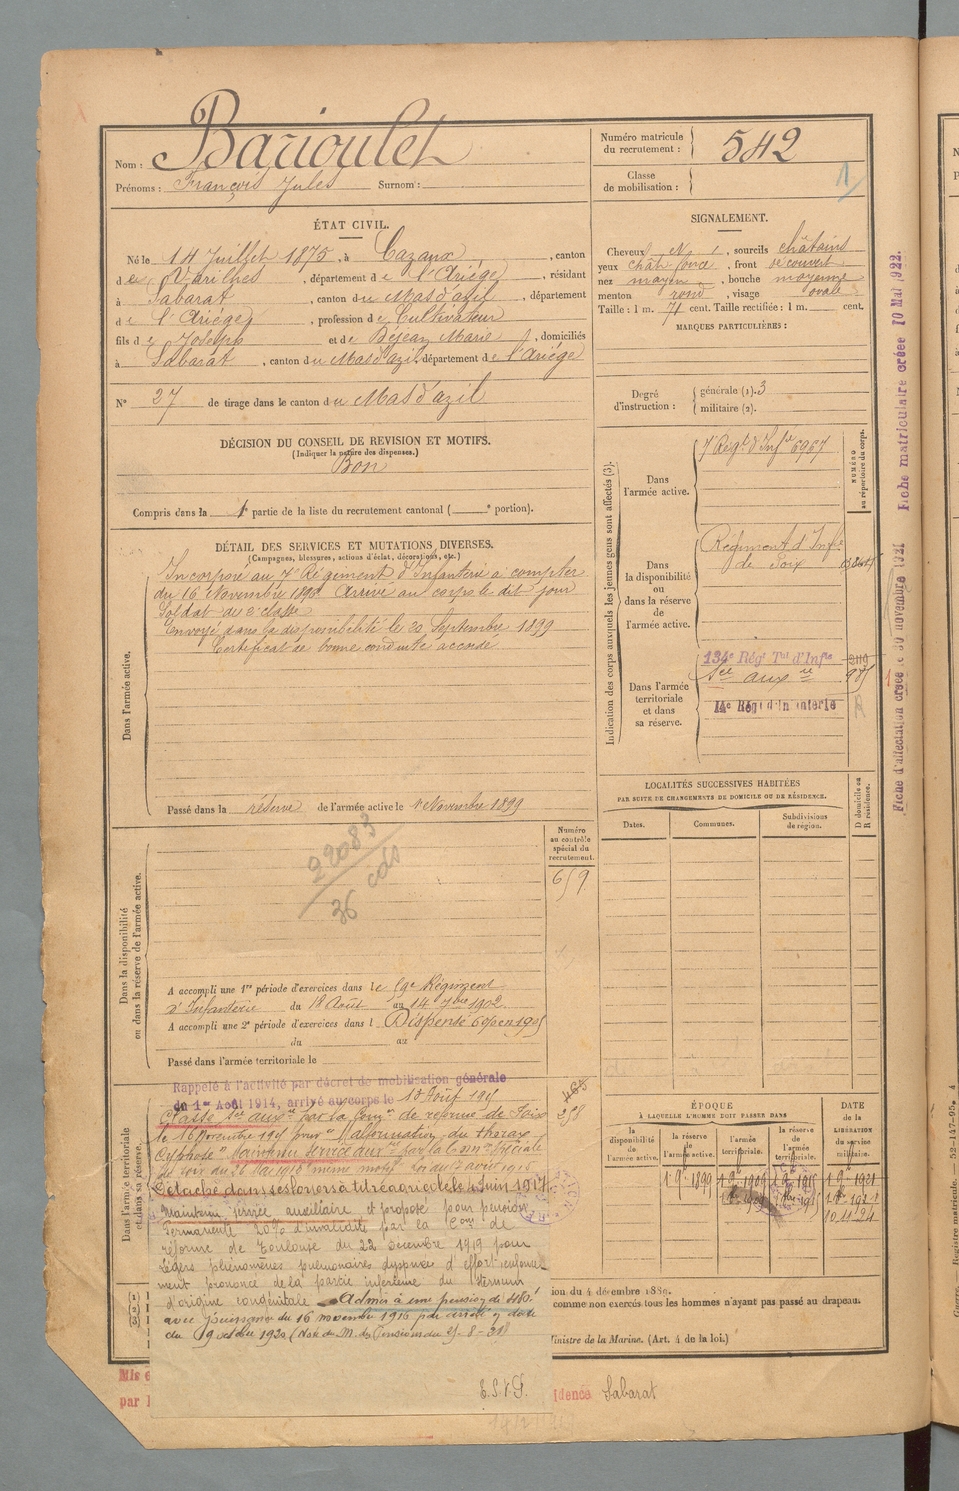 Nom : Barioulet
Prénoms : François Jules Surnom :
Numéro matricule du recrutement : 542
Classe de mobilisation :
1
ÉTAT CIVIL.
Né le 14 Juillet 1875, à Cazaux, canton
de Varilhes, département de l'Ariège, résidant
à Sabarat, canton du Mas d'azil, département
de l'Ariège, profession de Cultivateur
fils de Joseph et de Béjean Marie, domiciliés
à Sabarat, canton du Mas d'azil, département de l'Ariège
N° 27 de tirage dans le canton du Mas d'azil
DÉCISION DU CONSEIL DE REVISION ET MOTIFS.
(Indiquer la nature des dispenses.)
Bon
Compris dans la 1e partie de la liste du recrutement cantonal ( e portion).
SIGNALEMENT.
Cheveux , sourcils châtains
yeux chât foncé, front découvert
nez moyen, bouche moyenne
menton rond, visage ovale
Taille : 1 m. 71 cent. Taille rectifiée : 1 m. cent.
MARQUES PARTICULIÈRES :
Degré d'instruction : générale (1). 3
militaire (2).
DÉTAIL DES SERVICES ET MUTATIONS DIVERSES.
(Campagnes, blessures, actions d'éclat, décorations, etc.)
Dans l'armée active.
Incorporé au 7e Régiment d'Infanterie à compter
du 16 Novembre 1896 Arrivé au corps le dit jour
Soldat de 2e classe
Envoyé dans la disponibilité le 20 Septembre 1899
Certificat de bonne conduite accordé
Passé dans la réserve de l'armée active le 1 Novembre 1899
Indication des corps auxquels les jeunes gens sont affectés (3).
NUMÉRO au répertoire du corps.
Dans l'armée active.
7 Régt d'Infie 6967
Dans la disponibilité ou dans la réserve de l'armée active.
Régiment d'Infie
de Foix
Dans l'armée territoriale et dans sa réserve.
134e Régt Tal d'Infie
Sce auxre
14e Régt d'Infanterie
Fiche d'affectation créée le 30 novembre 1921 Fiche matriculaire créée 10 Mai 1922.
LOCALITÉS SUCCESSIVES HABITÉES
PAR SUITE DE CHANGEMENTS DE DOMICILE OU DE RÉSIDENCE.
Dates. Communes. Subdivisions de région. D domicile ou R résidence.
Dans la disponibilité ou dans la réserve de l'armée active.
Numéro au contrôle spécial du recrutement.
22083
36
A accompli une 1re période d'exercices dans le 59e Régiment
d'Infanterie du 18 Août au 14 7bre 1902.
A accompli une 2e période d'exercices dans l Dispensé
du au
Passé dans l'armée territoriale le
Dans l'armée territoriale et dans sa réserve.
Rappelé à l'activité par décret de mobilisation générale
du 1er Août 1914, arrivé au corps le
Classé sce auxre par la Comon de réforme de Foix
le 16 Novembre 1915 pour "Malformation du thorax
Cyphose" Maintenu service auxre par la Comon spéciale
de Foix du
Détaché dans ses foyers à titre agricole le 4 Juin 1917
Maintenu service auxiliaire et proposé pour pension
permanente 20% d'invalidité par la Con de
réforme de Toulouse du 22 décembre 1919 pour
légers phénomènes pulmonaires dyspnée d'effort enfonce-
ment prononcé de la partie inférieure du sternum
d'origine congénitale. Admis à une pension de 480f
avec jouissance du 16 novembre 1915 par arrêté en date
du 9 octobre 1920 (Note du M. des Pensions du
ÉPOQUE
À LAQUELLE L'HOMME DOIT PASSER DANS
la disponibilité de l'armée active. la réserve de l'armée active. l'armée territoriale. la réserve de l'armée territoriale.
DATE de la LIBÉRATION du service militaire.
1 9bre 1899 1 9bre 1909 1 9bre 1915 1 9bre 1921
10.11.24
ion du 4 décembre 1889.
comme non exercés tous les hommes n'ayant pas passé au drapeau.
Ministre de la Marine. (Art. 4 de la loi.)
idence Sabarat